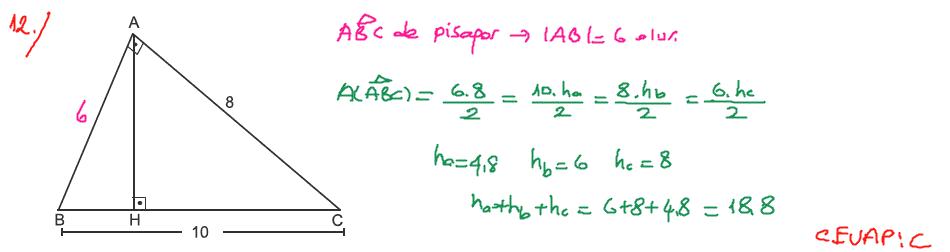 12./
A
6
8
B
H
C
10
ABC de pisagor → |AB| = 6 olur.
A(ABC) = 6.8/2 = 10.ha/2 = 8.hb/2 = 6.hc/2
ha=4,8 hb=6 hc=8
ha+hb+hc = 6+8+4,8 = 18,8
CEVAP: C